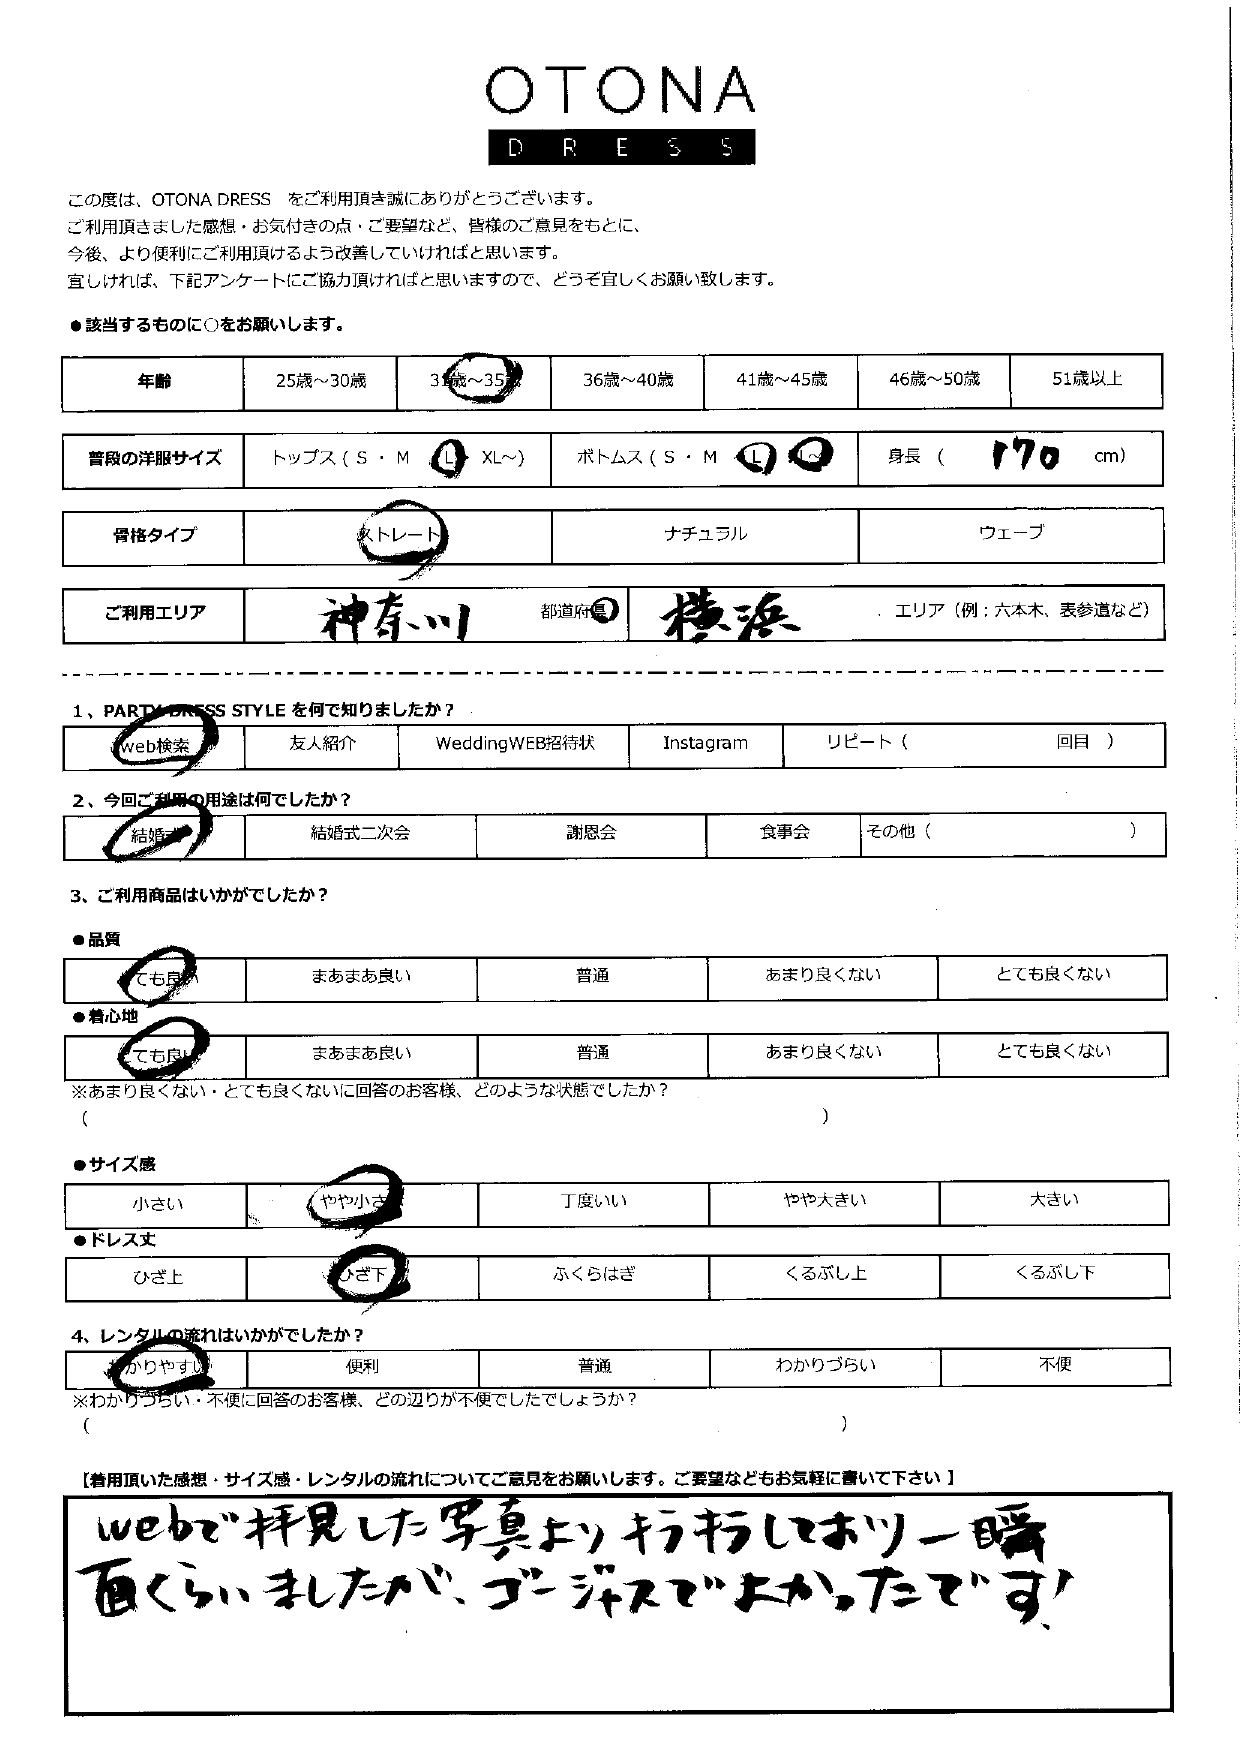 OTONA
DRESS
この度は、OTONA DRESS　をご利用頂き誠にありがとうございます。
ご利用頂きました感想・お気付きの点・ご要望など、皆様のご意見をもとに、
今後、より便利にご利用頂けるよう改善していければと思います。
宜しければ、下記アンケートにご協力頂ければと思いますので、どうぞ宜しくお願い致します。
●該当するものに○をお願いします。
年齢 25歳～30歳 31歳～35歳 36歳～40歳 41歳～45歳 46歳～50歳 51歳以上
普段の洋服サイズ トップス ( S ・ M L XL～) ボトムス ( S ・ M L 身長 ( 170 cm)
骨格タイプ ストレート ナチュラル ウェーブ
ご利用エリア 神奈川 都道府県 横浜 エリア（例：六本木、表参道など）
1、PARTY DRESS STYLE を何で知りましたか？
web検索 友人紹介 WeddingWEB招待状 Instagram リピート（ 回目 ）
2、今回ご利用の用途は何でしたか？
結婚式 結婚式二次会 謝恩会 食事会 その他（ ）
3、ご利用商品はいかがでしたか？
●品質
とても良い まあまあ良い 普通 あまり良くない とても良くない
●着心地
とても良い まあまあ良い 普通 あまり良くない とても良くない
※あまり良くない・とても良くないに回答のお客様、どのような状態でしたか？
( )
●サイズ感
小さい やや小さい 丁度いい やや大きい 大きい
●ドレス丈
ひざ上 ひざ下 ふくらはぎ くるぶし上 くるぶし下
4、レンタルの流れはいかがでしたか？
わかりやすい 便利 普通 わかりづらい 不便
※わかりづらい・不便に回答のお客様、どの辺りが不便でしたでしょうか？
( )
【着用頂いた感想・サイズ感・レンタルの流れについてご意見をお願いします。ご要望などもお気軽に書いて下さい】
webで拝見した写真よりキラキラしておリ一瞬
面くらいましたが、ゴージャスでよかったです!